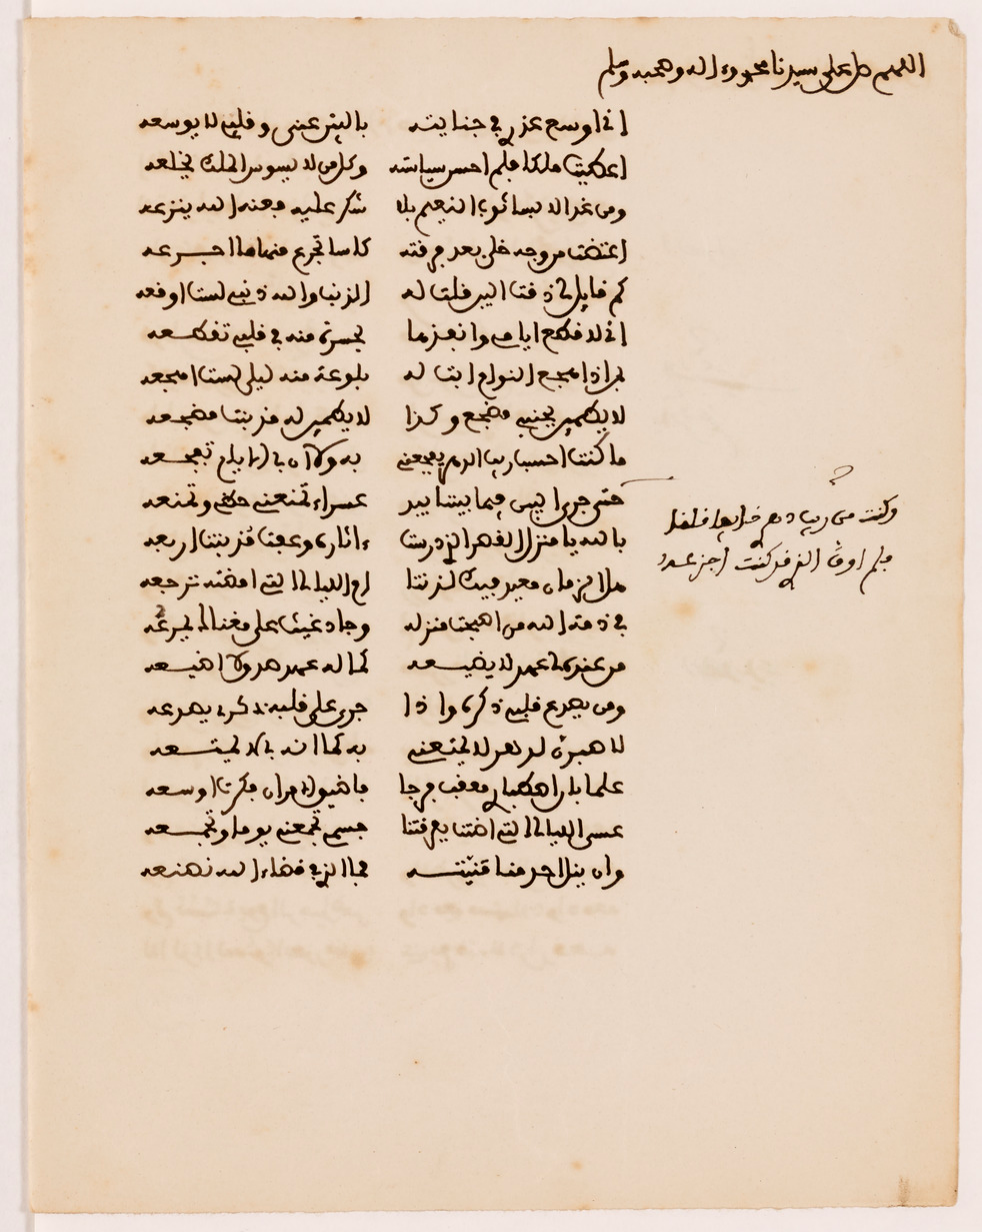 اللهم صل على سيدنا محمد وءاله وصحبه وسلم
اني اوسع عذري في جنايته بالبين عني وقلبي لا يوسعه
اعطيت ملكا فلم احسن سياسته وكل من لا يسوس الملك يخلعه
ومن غدا لابسا ثوب النعيم بلا شكر عليه فعنه الله ينزعه
اعتضت من وجه خلي بعد فرقته كاسا تجرع منها ما اجرعه
كم قايل لي ذقت البين قلت له الذنب والله ذنبي لست ادفعه
اني لاقطع ايامي وانفدها بحسرة منه في قلبي تقطعه
بمن اذا هجع النوام ابت له بلوعة منه ليلي لست اهجعه
لا يطمين بجنبي مضجع وكذا لا يطمين له مذ بنت مضجعه
ما كنت احسب ريب الدهر يفجعني به ولا ان بي الايام تفجعه
حتى جرى البين فيما بيننا بيد عسراء تمنعني حظي وتمنعه
وكنت من ريب دهري خايفا قلقا
فلم اوق الذي قد كنت اجزعه
بالله يا منزل القصر الذي درست ءاثاره وعفت مذ بنت اربعه
هل الزمان معيد فيك لذتنا ام الليالي التي امضته ترجعه
في ذمة الله من اصبحت منزله وجاد غيث على مغناك يمرعه
من عنده لي عهد لا يضيعه كما له عهد صدق لا اضيعه
ومن يصدع قلبي ذكره واذا جرى على قلبه ذكري يصدعه
لاصبرن لدهر لا يمتعني به كما انه بي لا يمتعه
علما بان اصطباري معقب فرجا فاضيق الامر ان فكرت اوسعه
عسى الليالي التي اضنت بفرقتنا جسمي تجمعني يوما وتجمعه
وان ينل احد منا منيته فما الذي في قضاء الله نصنعه